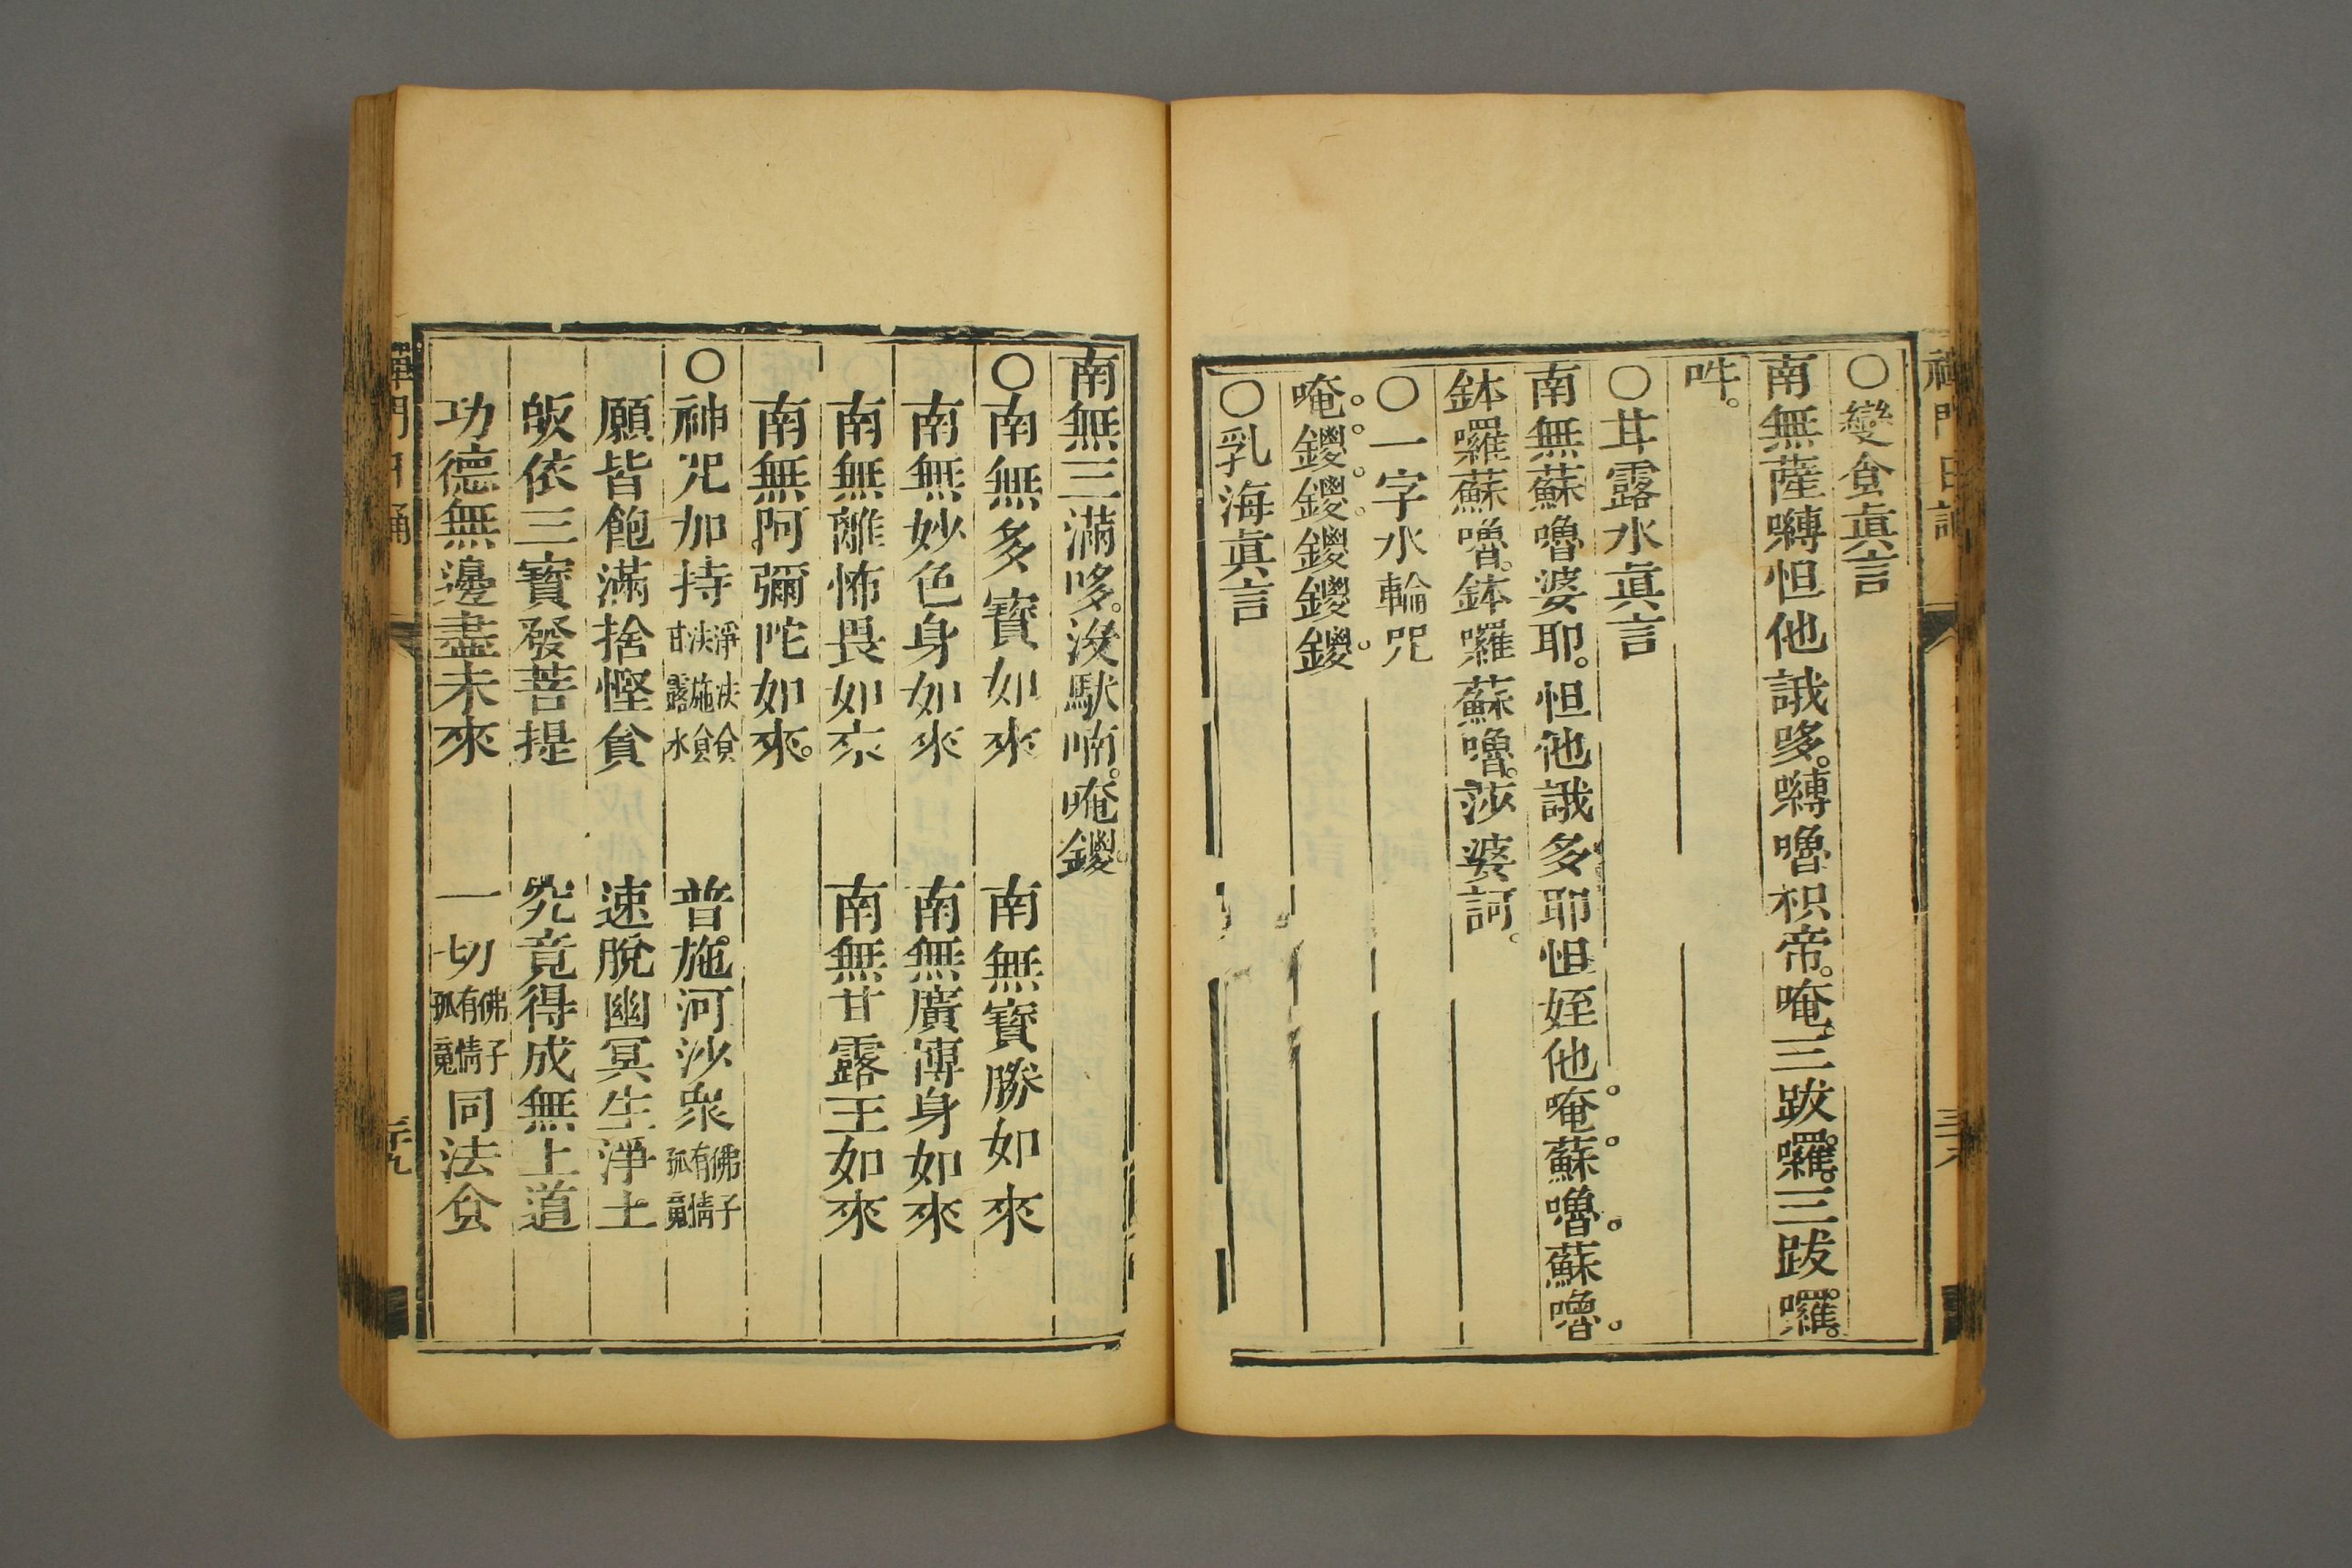 ○變食眞言
南無薩嚩怛他誐哆。嚩嚕枳帝。唵。三跋囉。三跋囉。
吽。
○甘露水眞言
南無蘇嚕婆耶。怛他誐多耶怛姪他。唵。蘇嚕。蘇嚕。
鉢囉蘇嚕。鉢囉蘇嚕。莎婆訶。
○一字水輪咒
唵。鑁。鑁。鑁鑁鑁。
○乳海眞言
南無三滿哆。沒馱喃。唵鑁。
○南無多寳如來 南無寳勝如來
南無妙色身如來 南無廣漙身如來
南無離怖畏如來 南無甘露王如來
南無阿彌陀如來。
○神咒加持淨法食法施食甘露水 普施河沙衆佛子有情孤䰟
願皆飽滿捨慳貪 速脫幽冥生淨土
皈依三寳發菩提 究竟得成無上道
功德無邊盡未來 一切佛子有情孤䰟同法食
禪門日誦
三十九